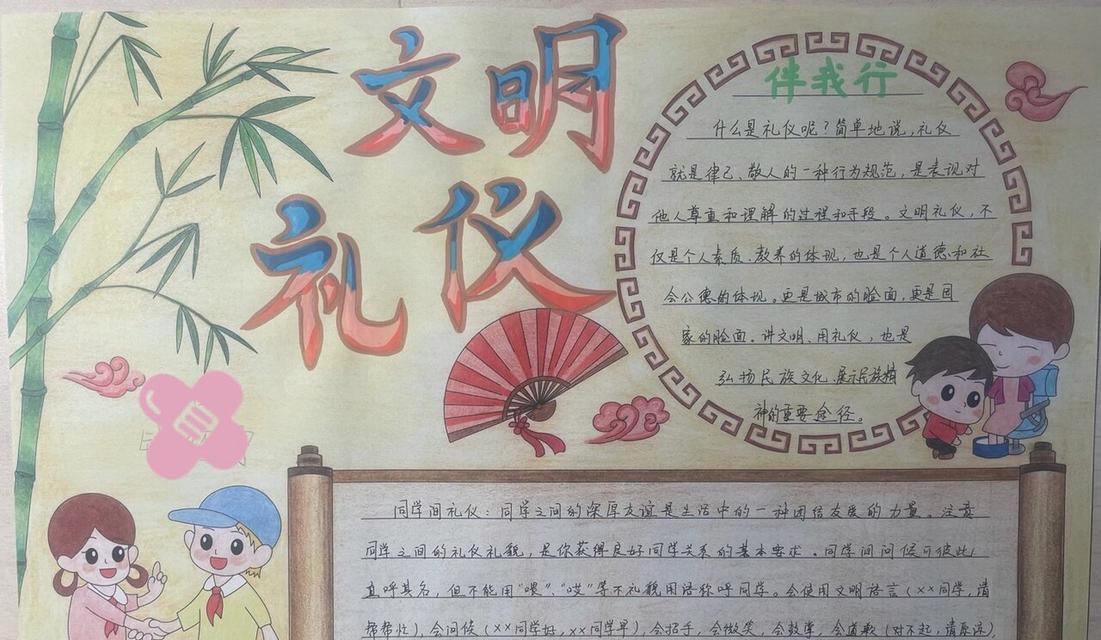 文明
礼仪
伴我行
什么是礼仪呢？简单地说，礼仪
就是律己、敬人的一种行为规范，是表现对
他人尊重和理解的过程和手段。文明礼仪，不
仅是个人素质、教养的体现，也是个人道德和社
会公德的体现。更是城市的脸面，更是国
家的脸面。讲文明、用礼仪，也是
弘扬民族文化、展示民族精
神的重要途径。
同学间礼仪：同学之间的深厚友谊是生活中的一种团结友爱的力量。注意
同学之间的礼仪礼貌，是你获得良好同学关系的基本要求。同学间问候可彼此
直呼其名，但不能用“喂”、“哎”等不礼貌用语称呼同学。会使用文明语言（××同学，请
帮帮忙），会问候（××同学好，××同学早），会招手，会微笑，会鼓掌，会道歉（对不起，请原谅）